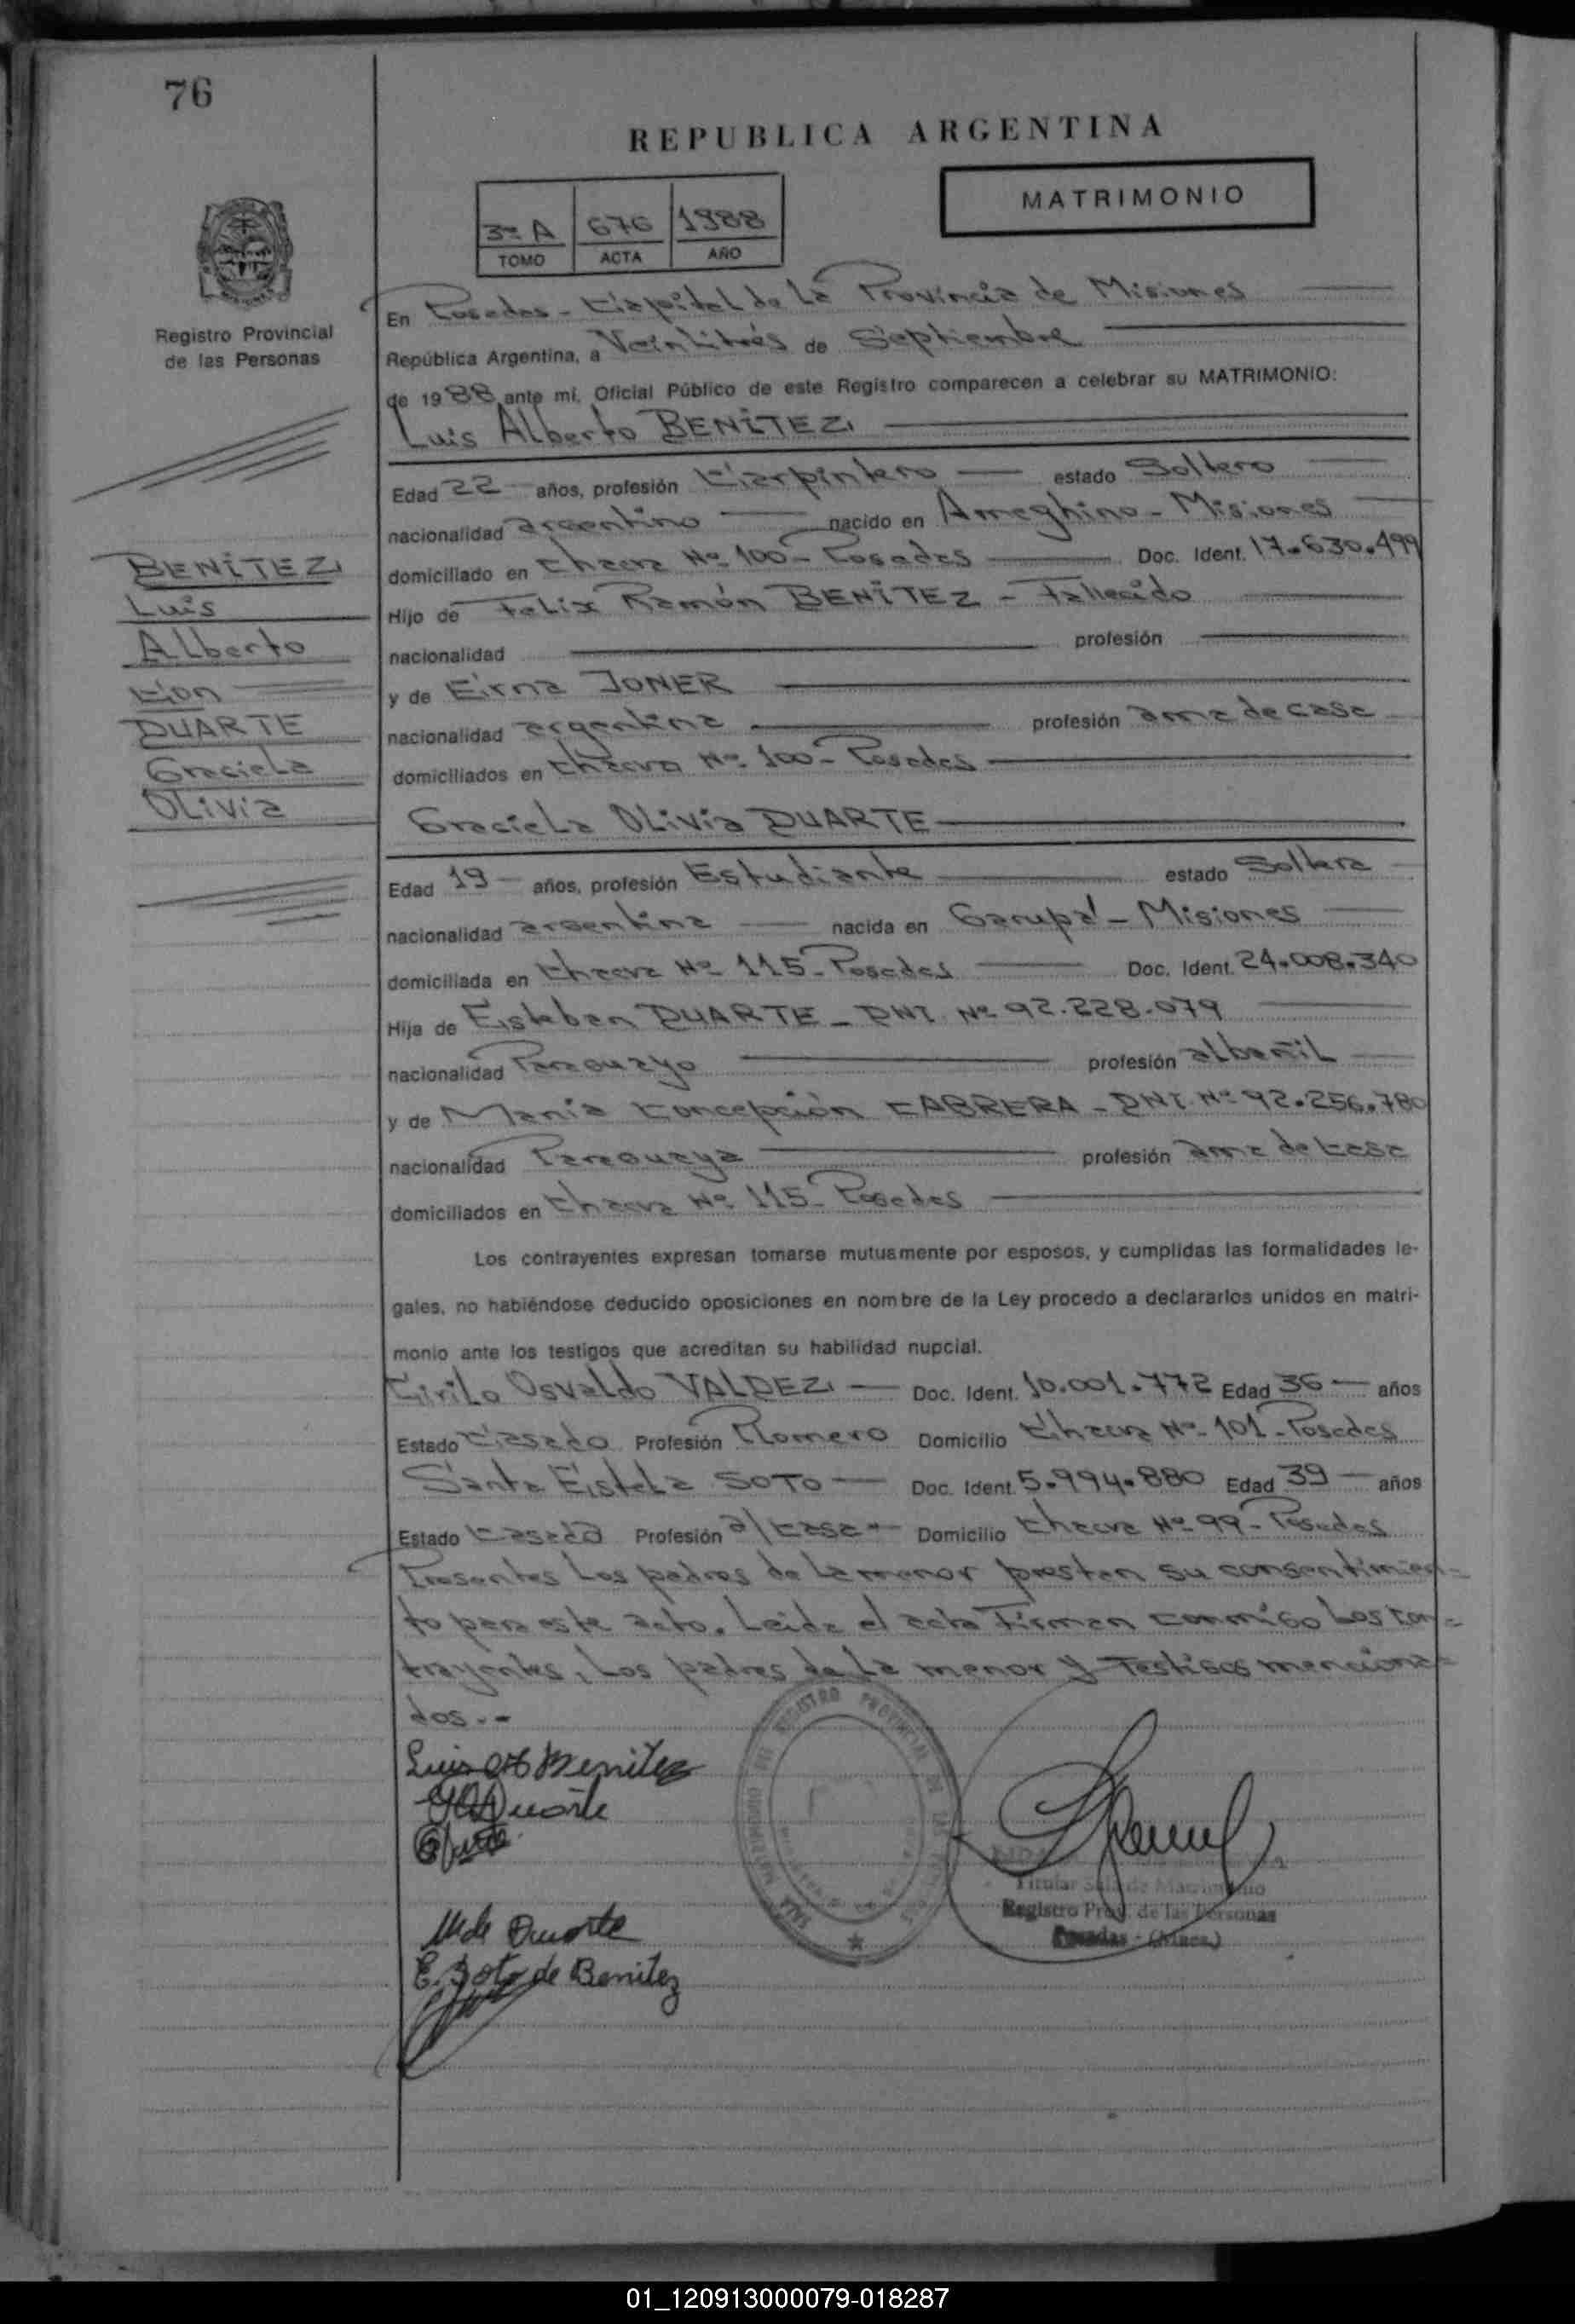 76
REPUBLICA ARGENTINA
MATRIMONIO
3º A 676 1988
TOMO ACTA AÑO
Registro Provincial
de las Personas
En Posadas - Capital de la Provincia de Misiones
República Argentina, a Veintitrés de Septiembre
de 1988 ante mí, Oficial Público de este Registro comparecen a celebrar su MATRIMONIO:
Luis Alberto BENITEZ
Edad 22 años, profesión Carpintero estado Soltero
nacionalidad argentino nacido en Ameghino - Misiones
domiciliado en Chacra Nº 100 - Posadas Doc. Ident. 17.630.499
Hijo de Felix Ramón BENITEZ - Fallecido
nacionalidad profesión
y de Erna JONER
nacionalidad argentina profesión ama de casa
domiciliados en Chacra Nº 100 - Posadas
BENITEZ
Luis
Alberto
Con
DUARTE
Graciela
Olivia
Graciela Olivia DUARTE
Edad 19 años, profesión Estudiante estado Soltera
nacionalidad argentina nacida en Garupá - Misiones
domiciliada en Chacra Nº 115 - Posadas Doc. Ident. 24.008.340
Hija de Esteban DUARTE - DNI Nº 92.228.079
nacionalidad Paraguayo profesión albañil
y de María Concepción CABRERA - DNI Nº 92.256.780
nacionalidad Paraguaya profesión ama de casa
domiciliados en Chacra Nº 115 - Posadas
Los contrayentes expresan tomarse mutuamente por esposos, y cumplidas las formalidades le-
gales, no habiéndose deducido oposiciones en nombre de la Ley procedo a declararlos unidos en matri-
monio ante los testigos que acreditan su habilidad nupcial.
Cirilo Osvaldo VALDEZ Doc. Ident. 10.001.772 Edad 36 años
Estado Casado Profesión Plomero Domicilio Chacra Nº 101 - Posadas
Santa Estela SOTO Doc. Ident. 5.994.880 Edad 39 años
Estado Casada Profesión a/casa Domicilio Chacra Nº 99 - Posadas
Presentes los padres de la menor prestan su consentimien-
to para este acto. Leída el acta firman conmigo los con-
trayentes, los padres de la menor y testigos menciona-
dos.-
Luis Alb Benitez
Duarte
M de Duarte
E. Soto de Benitez
REGISTRO PROVINCIAL DE LAS PERSONAS
Titular Sala de Matrimonio
Registro Prov. de las Personas
Posadas - (Mnes.)
01_120913000079-018287